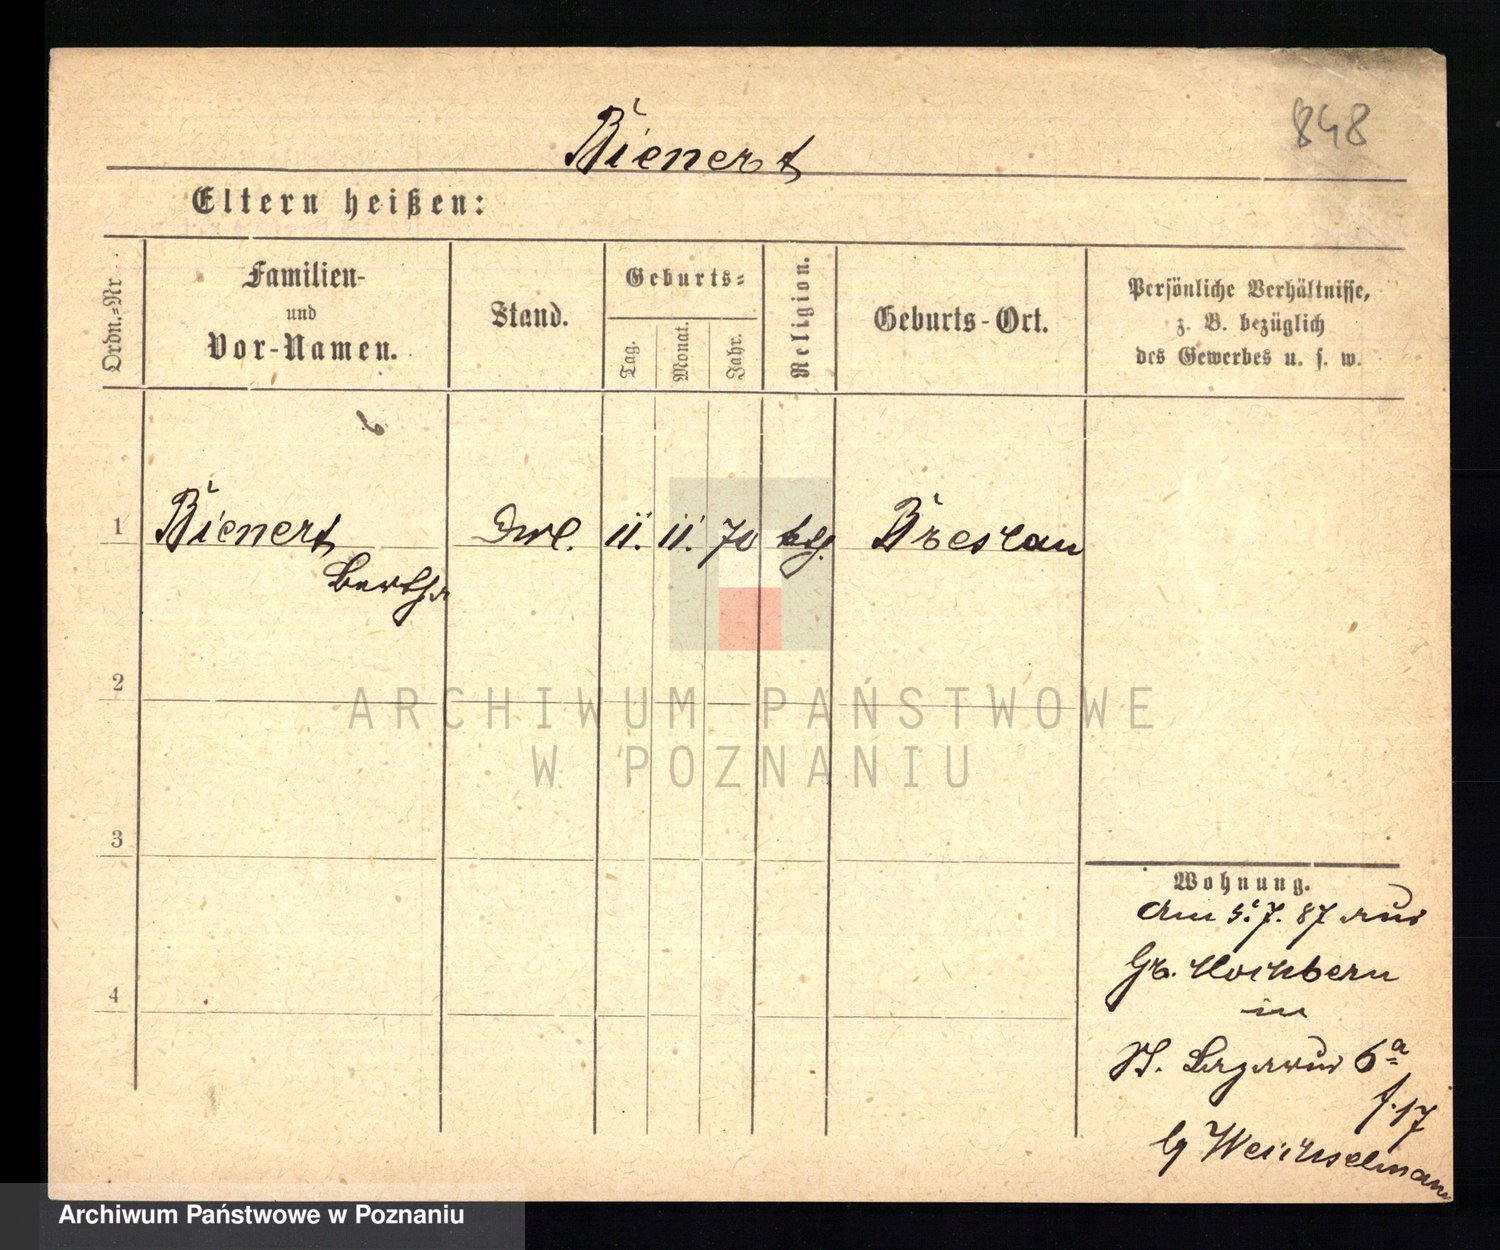 848
Bienert
Eltern heißen:
Ordn.=Nr.
Familien-
und
Vor-Namen.
Stand.
Geburts=
Tag.
Monat.
Jahr.
Religion.
Geburts-Ort.
Persönliche Verhältnisse,
z. B. bezüglich
des Gewerbes u. s. w.
1 Bienert 11. 11. 70 kth. Breslau
Bertha
2
ARCHIWUM PAŃSTWOWE
W POZNANIU
3
Wohnung.
Am 5. 7. 87 aus
4
in
St. Lazarus 6a
f. 17
Weichselmann
Archiwum Państwowe w Poznaniu